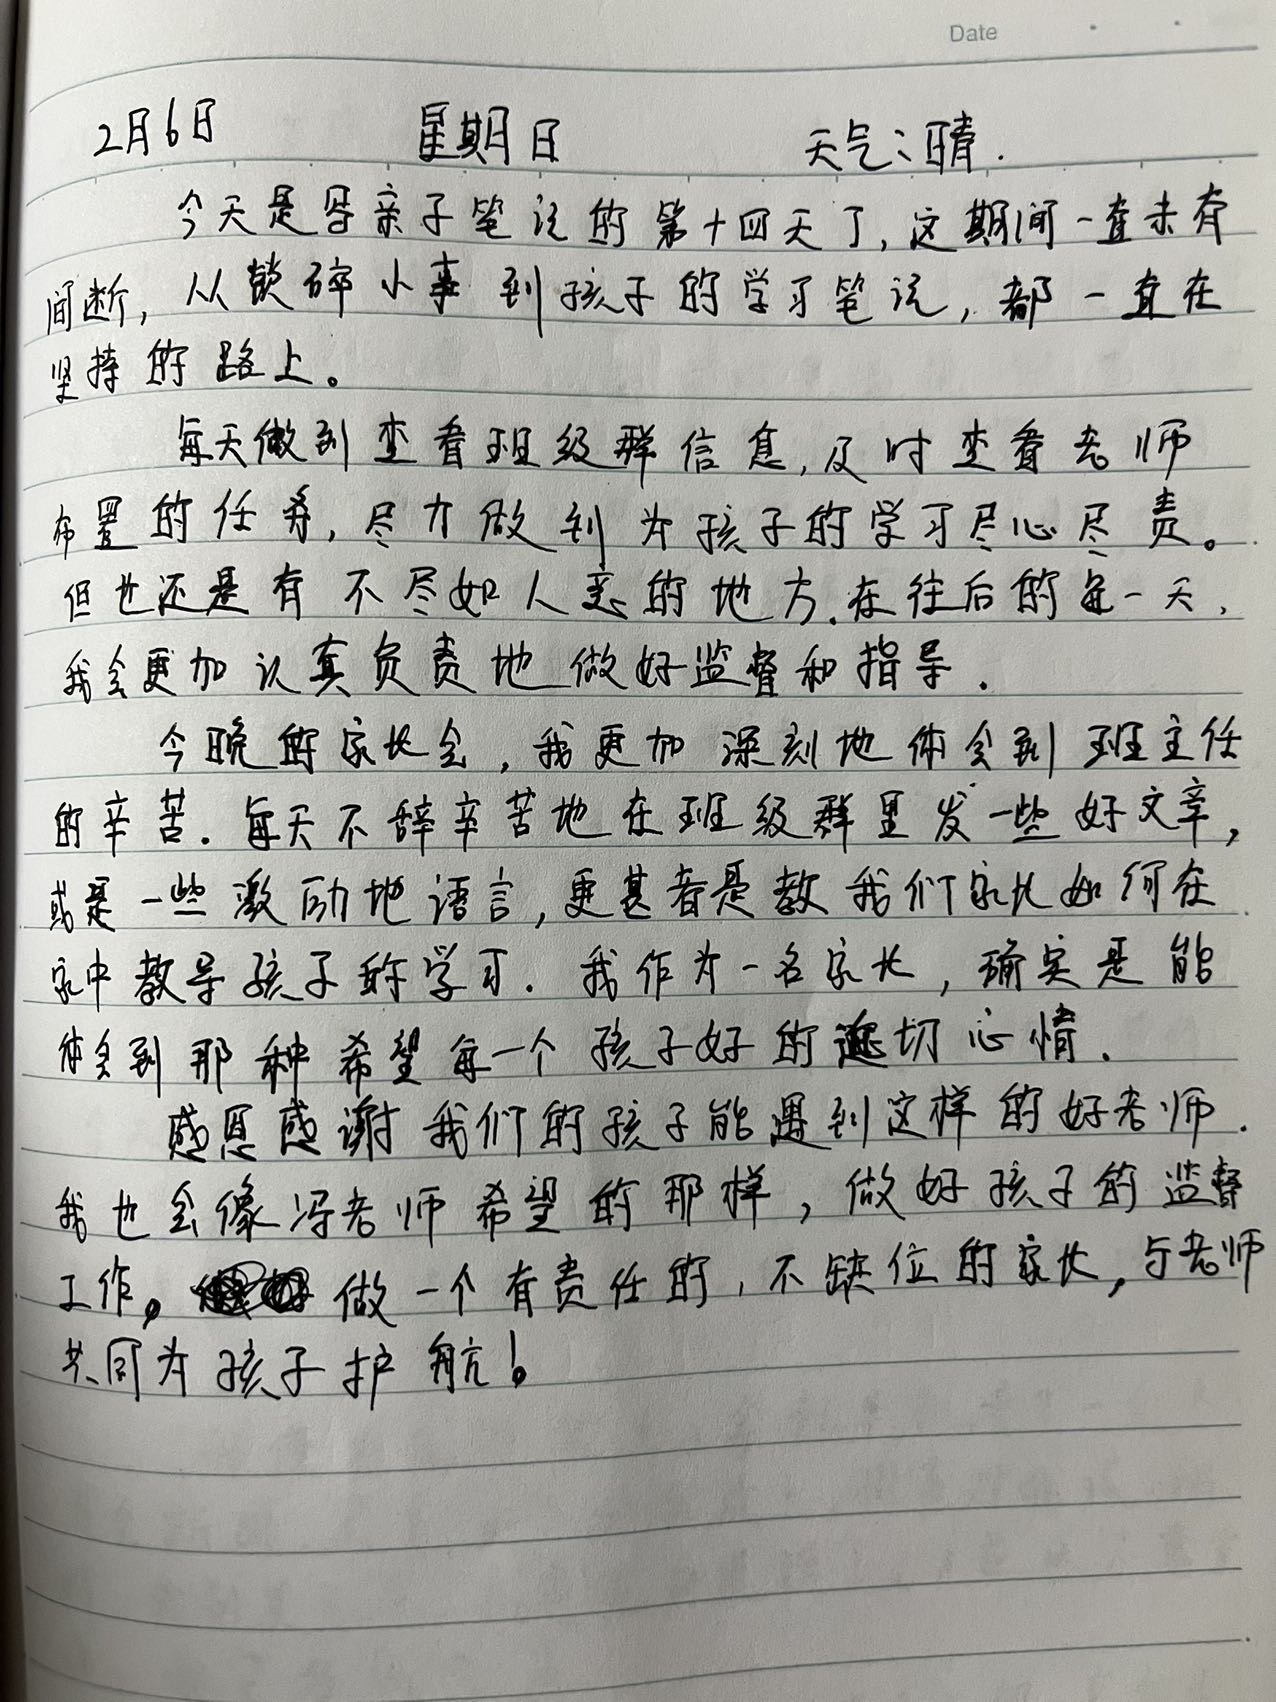 Date
2月6日 星期日 天气:晴.
今天是写亲子笔记的第十四天了,这期间一直未有
间断,从锁碎小事到孩子的学习笔记,都一直在
坚持的路上。
每天做到查看班级群信息,及时查看老师
布置的任务,尽力做到为孩子的学习尽心尽责。
但也还是有不尽如人意的地方.在往后的每一天,
我会更加认真负责地做好监督和指导.
今晚的家长会,我更加深刻地体会到班主任
的辛苦.每天不辞辛苦地在班级群里发一些好文章,
或是一些激励地语言,更甚者是教我们家长如何在
家中教导孩子的学习.我作为一名家长,确实是能
体会到那种希望每一个孩子好的迫切心情.
感恩感谢我们的孩子能遇到这样的好老师.
我也会像冯老师希望的那样,做好孩子的监督
工作。做一个有责任的,不缺位的家长,与老师
共同为孩子护航!